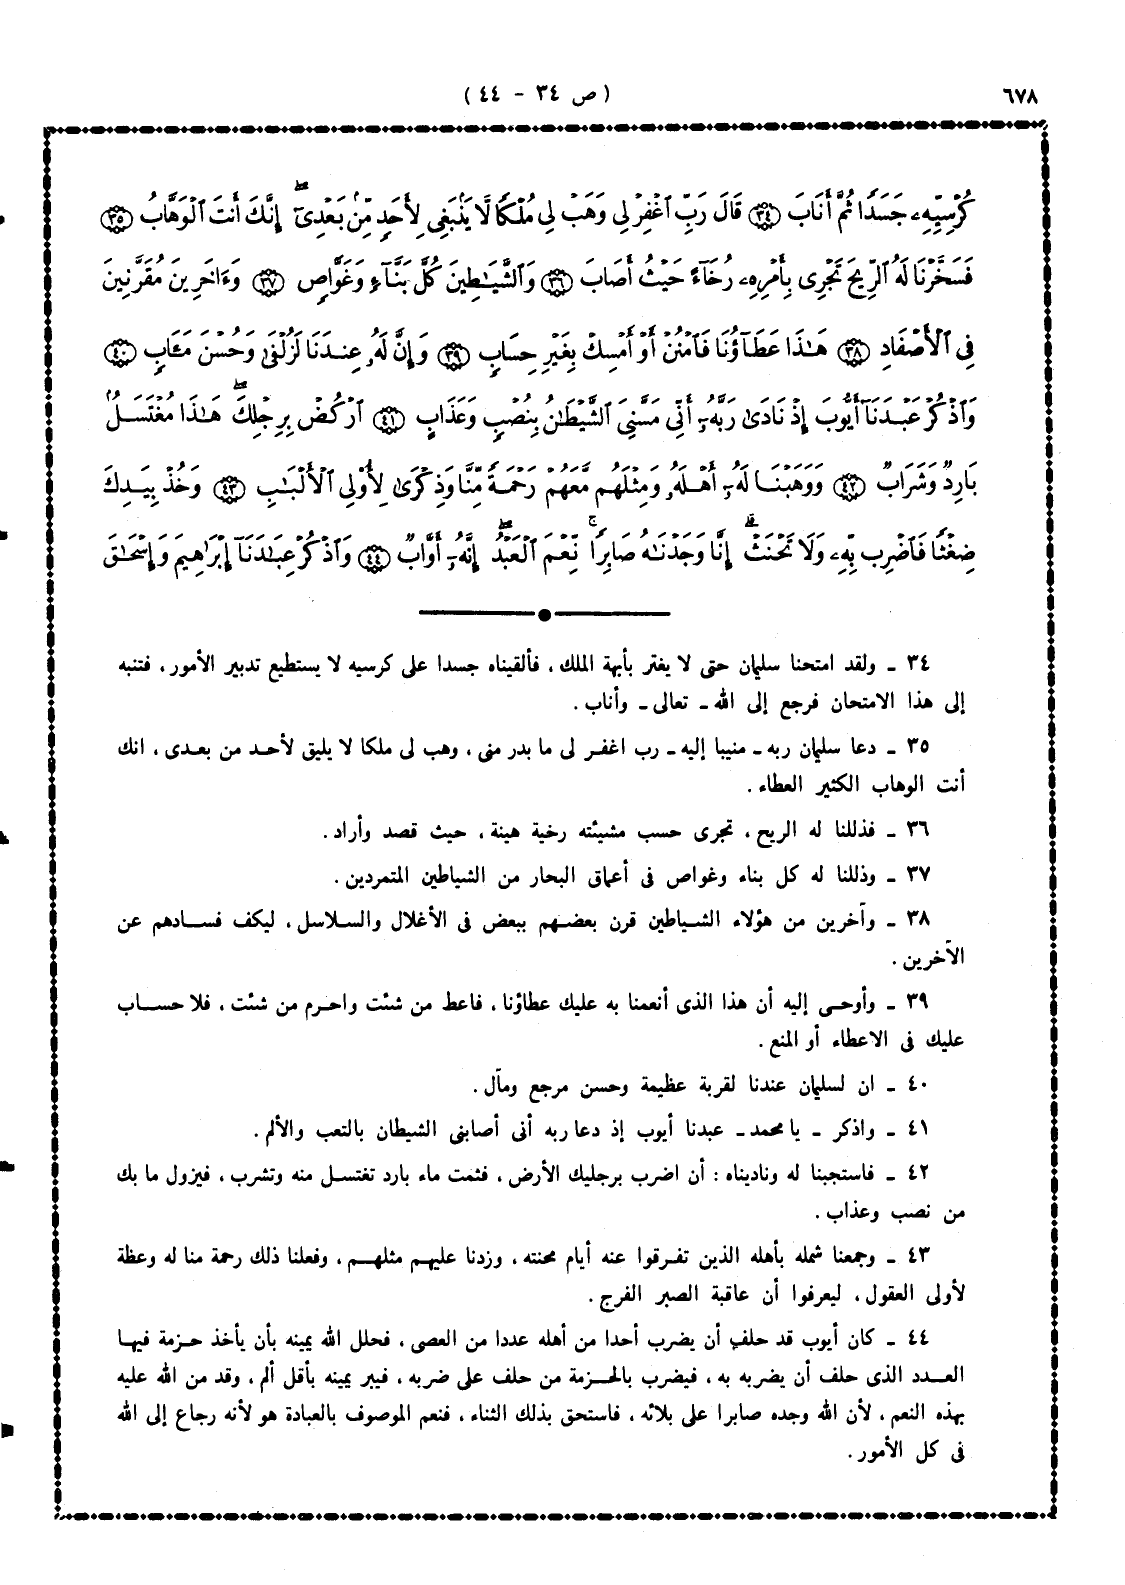 ٦٧٨
( ص ٣٤ - ٤٤ )
كُرْسِيِّهِۦ جَسَدًا ثُمَّ أَنَابَ ٣٤ قَالَ رَبِّ ٱغْفِرْ لِى وَهَبْ لِى مُلْكًا لَّا يَنۢبَغِى لِأَحَدٍ مِّنۢ بَعْدِىٓ ۖ إِنَّكَ أَنتَ ٱلْوَهَّابُ ٣٥
فَسَخَّرْنَا لَهُ ٱلرِّيحَ تَجْرِى بِأَمْرِهِۦ رُخَآءً حَيْثُ أَصَابَ ٣٦ وَٱلشَّيَٰطِينَ كُلَّ بَنَّآءٍ وَغَوَّاصٍ ٣٧ وَءَاخَرِينَ مُقَرَّنِينَ
فِى ٱلْأَصْفَادِ ٣٨ هَٰذَا عَطَآؤُنَا فَٱمْنُنْ أَوْ أَمْسِكْ بِغَيْرِ حِسَابٍ ٣٩ وَإِنَّ لَهُۥ عِندَنَا لَزُلْفَىٰ وَحُسْنَ مَـَٔابٍ ٤٠
وَٱذْكُرْ عَبْدَنَآ أَيُّوبَ إِذْ نَادَىٰ رَبَّهُۥٓ أَنِّى مَسَّنِىَ ٱلشَّيْطَٰنُ بِنُصْبٍ وَعَذَابٍ ٤١ ٱرْكُضْ بِرِجْلِكَ ۖ هَٰذَا مُغْتَسَلٌۢ
بَارِدٌ وَشَرَابٌ ٤٢ وَوَهَبْنَا لَهُۥٓ أَهْلَهُۥ وَمِثْلَهُم مَّعَهُمْ رَحْمَةً مِّنَّا وَذِكْرَىٰ لِأُو۟لِى ٱلْأَلْبَٰبِ ٤٣ وَخُذْ بِيَدِكَ
ضِغْثًا فَٱضْرِب بِّهِۦ وَلَا تَحْنَثْ ۗ إِنَّا وَجَدْنَٰهُ صَابِرًا ۚ نِّعْمَ ٱلْعَبْدُ ۖ إِنَّهُۥٓ أَوَّابٌ ٤٤ وَٱذْكُرْ عِبَٰدَنَآ إِبْرَٰهِيمَ وَإِسْحَٰقَ
٣٤ ـ ولقد امتحنا سليمان حتى لا يغتر بأبهة الملك ، فألقيناه جسدا على كرسيه لا يستطيع تدبير الأمور ، فتنبه
إلى هذا الامتحان فرجع إلى الله ـ تعالى ـ وأناب .
٣٥ ـ دعا سليمان ربه ـ منيبا إليه ـ رب اغفر لى ما بدر منى ، وهب لى ملكا لا يليق لأحد من بعدى ، انك
أنت الوهاب الكثير العطاء .
٣٦ ـ فذللنا له الريح ، تجرى حسب مشيئته رخية هينة ، حيث قصد وأراد .
٣٧ ـ وذللنا له كل بناء وغواص فى أعماق البحار من الشياطين المتمردين .
٣٨ ـ وآخرين من هؤلاء الشياطين قرن بعضهم ببعض فى الأغلال والسلاسل ، ليكف فسادهم عن
الآخرين .
٣٩ ـ وأوحى إليه أن هذا الذى أنعمنا به عليك عطاؤنا ، فاعط من شئت واحرم من شئت ، فلا حساب
عليك فى الاعطاء أو المنع .
٤٠ ـ ان لسليمان عندنا لقربة عظيمة وحسن مرجع ومآل .
٤١ ـ واذكر ـ يا محمد ـ عبدنا أيوب إذ دعا ربه أنى أصابنى الشيطان بالتعب والألم .
٤٢ ـ فاستجبنا له وناديناه : أن اضرب برجليك الأرض ، فثمت ماء بارد تغتسل منه وتشرب ، فيزول ما بك
من نصب وعذاب .
٤٣ ـ وجمعنا شمله بأهله الذين تفرقوا عنه أيام محنته ، وزدنا عليهم مثلهم ، وفعلنا ذلك رحمة منا له وعظة
لأولى العقول ، ليعرفوا أن عاقبة الصبر الفرج .
٤٤ ـ كان أيوب قد حلف أن يضرب أحدا من أهله عددا من العصى ، فحلل الله يمينه بأن يأخذ حزمة فيها
العدد الذى حلف أن يضربه به ، فيضرب بالحزمة من حلف على ضربه ، فيبر يمينه بأقل ألم ، وقد من الله عليه
بهذه النعم ، لأن الله وجده صابرا على بلائه ، فاستحق بذلك الثناء ، فنعم الموصوف بالعبادة هو لأنه رجاع إلى الله
فى كل الأمور .